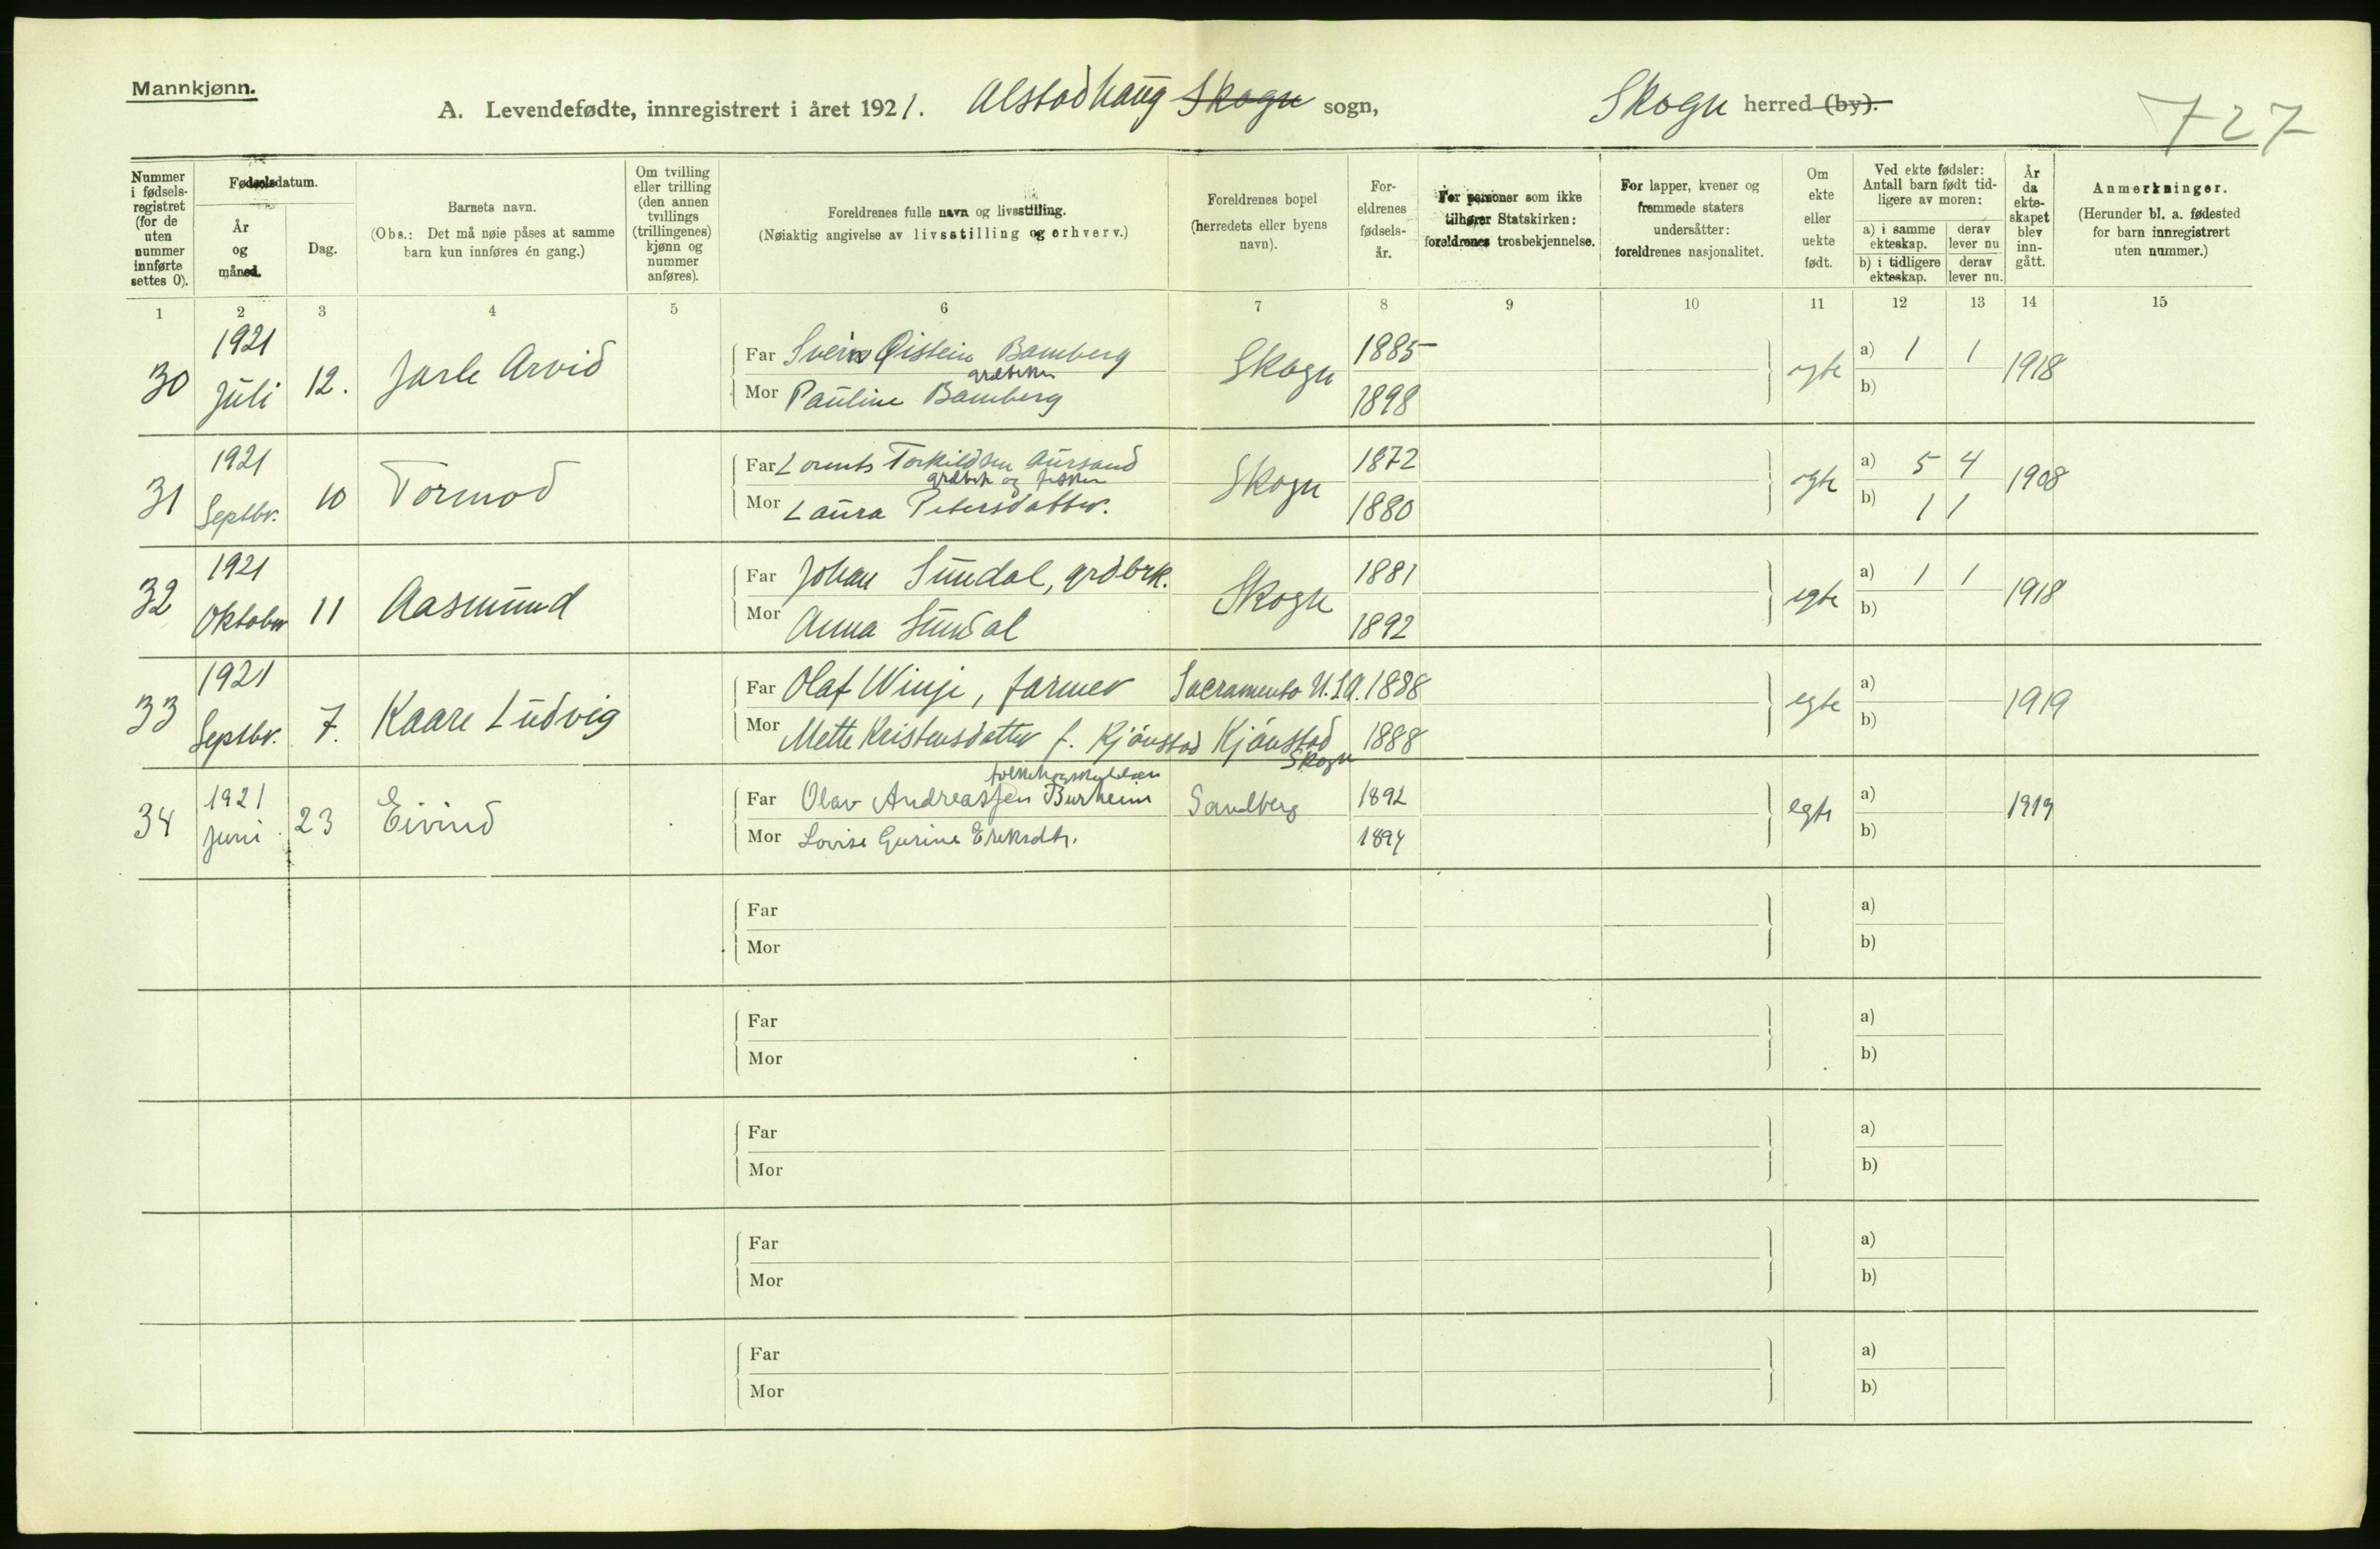 Mannkjønn.
A. Levendefødte, innregistrert i året 1921. Alstadhaug Skogn sogn, Skogn herred (by).
727
Nummer i fødsels-registret (for de uten nummer innførte settes 0).
Fødselsdatum.
År og måned.
Dag.
Barnets navn.
(Obs.: Det må nøie påses at samme barn kun innføres én gang.)
Om tvilling eller trilling (den annen tvillings (trillingenes) kjønn og nummer anføres).
Foreldrenes fulle navn og livsstilling.
(Nøiaktig angivelse av livsstilling og erhverv.)
Foreldrenes bopel (herredets eller byens navn).
For-eldrenes fødsels-år.
For personer som ikke tilhører Statskirken: foreldrenes trosbekjennelse.
For lapper, kvener og fremmede staters undersåtter: foreldrenes nasjonalitet.
Om ekte eller uekte født.
Ved ekte fødsler: Antall barn født tid-ligere av moren:
a) i samme ekteskap.
derav lever nu
b) i tidligere ekteskap.
derav lever nu.
År da ekte-skapet blev inn-gått.
Anmerkninger.
(Herunder bl. a. fødested for barn innregistrert uten nummer.)
1 2 3 4 5 6 7 8 9 10 11 12 13 14 15
30 1921 Juli 12. Jarle Arvid
Far Svein Øistein Bamberg grdbrker
Mor Pauline Bamberg
Skogn 1885 1898 egte a) 1 1 b) 1918
31 1921 Septbr. 10 Tormod
Far Lorents Torkildsen Aursand
grdbrk og fisker
Mor Laura Petersdatter.
Skogn 1872 1880 egte a) 5 4 b) 1 1 1908
32 1921 Oktober 11 Aasmund
Far Johan Sundal, grdbrk.
Mor Anna Sundal
Skogn 1881 1892 egte a) 1 1 b) 1918
33 1921 Septbr. 7. Kaare Ludvig
Far Olaf Winje, farmer Sacramento U.S.A. 1888
Mor Mette Kristensdatter f. Kjönstad Kjönstad Skogn 1888
egte a) b) 1919
34 1921 Juni 23 Eivind
Far Olav Andreassen Burheim
Mor Lovise Gurine Ereksdtr.
Sandberg 1892 1894 egte a) b) 1919
Far a)
Mor b)
Far a)
Mor b)
Far a)
Mor b)
Far a)
Mor b)
Far a)
Mor b)